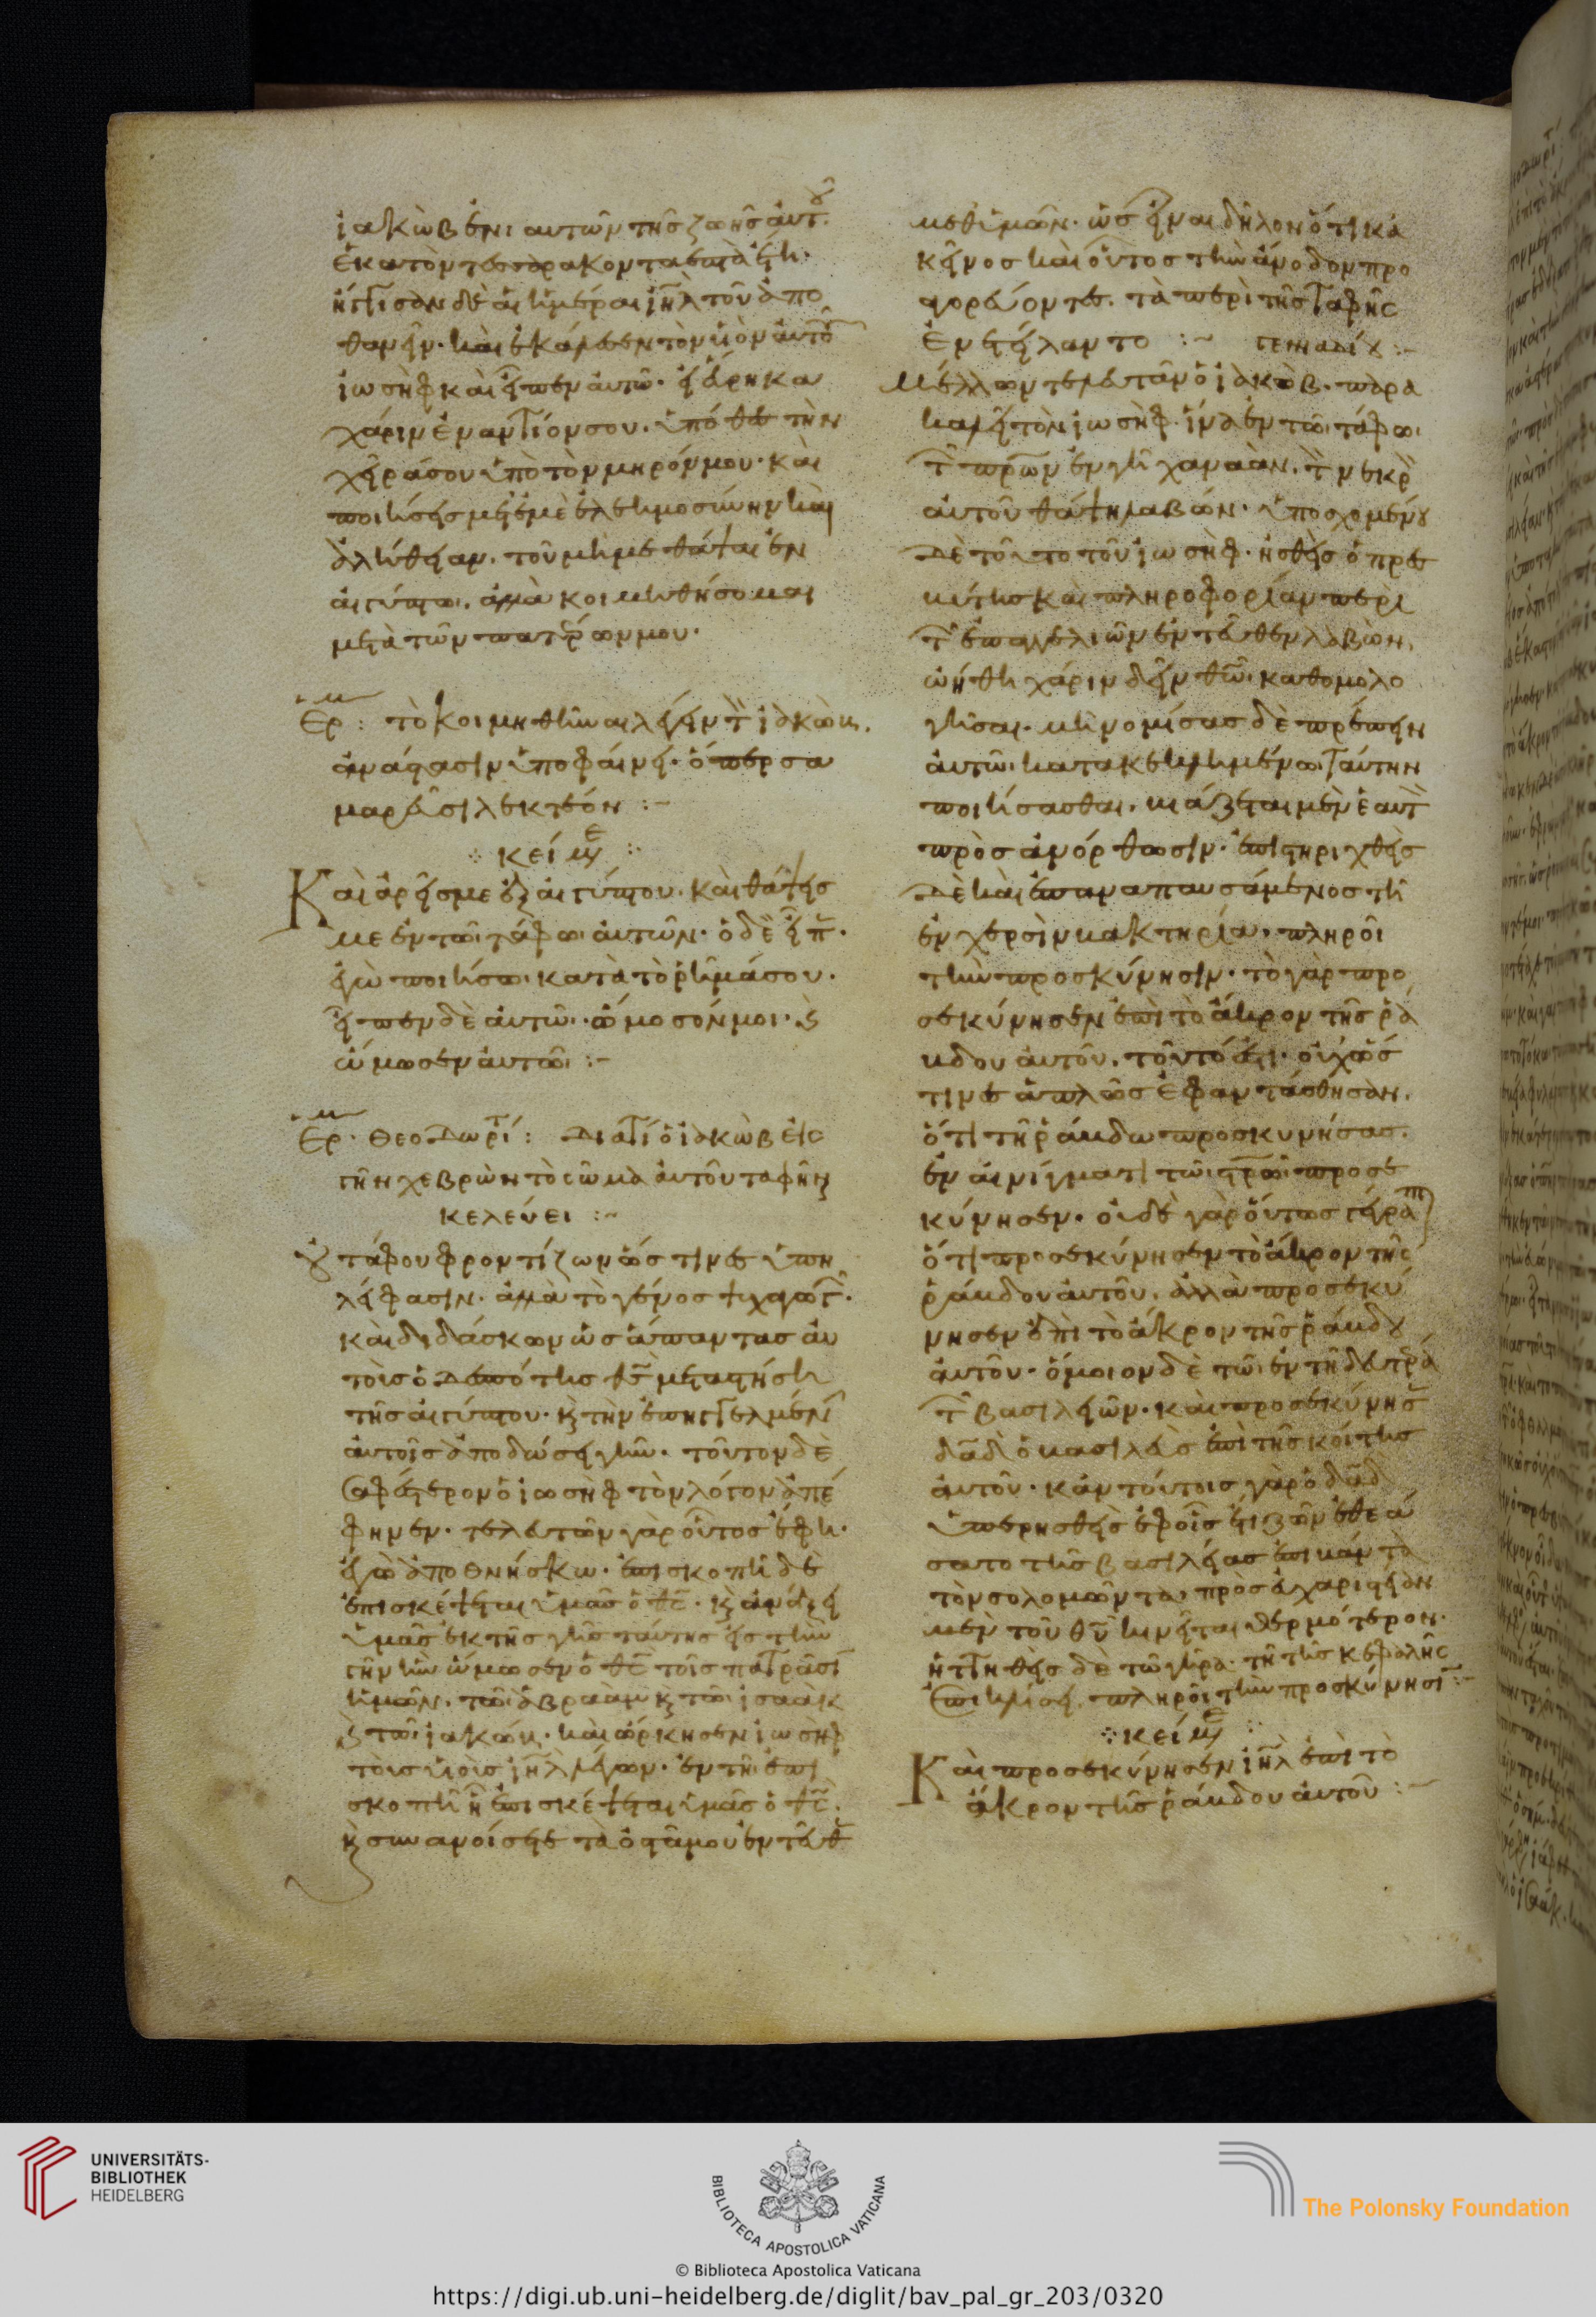 ἰακὼβ ἐνιαυτῶν τῆς ζωῆς αὐτοῦ.
ἑκατὸν τεσσαρακονταεπτὰ ἔτη.
ἤγγισαν δὲ αἱ ἡμέραι ἰηλ τοῦ ἀπο
θανεῖν. καὶ ἐκάλεσεν τὸν υἱὸν αὐτοῦ
ἰωσὴφ καὶ εἶπεν αὐτῶ. εἰ εὕρηκα
χάριν ἐναντίον σου. ὑπόθες τὴν
χεῖρά σου ὑπὸ τὸν μηρόν μου. καὶ
ποιήσεις μετ' ἐμὲ ἐλεημοσύνην καὶ
ἀλήθειαν. τοῦ μή με θάψαι ἐν
αἰγύπτω. ἀλλὰ κοιμηθήσομαι
μετὰ τῶν πατέρων μου.
Ἑρμ: τὸ κοιμηθῆναι λέγειν τὸν ἰακὼβ.
ἀνάστασιν ὑποφαίνει. ὅπερ σα
μαρεῦσι λεκτέον :–
κείμε
Καὶ ἀρεῖς με ἐξ αἰγύπτου. καὶ θάψεις
με ἐν τῶ τάφω αὐτῶν. ὁ δὲ εἶπ.
ἐγὼ ποιήσω κατὰ τὸ ῥῆμά σου.
εἶπεν δὲ αὐτῶ. ὄμοσόν μοι. καὶ
ὤμοσεν αὐτῶ :–
Ἑρμ. Θεοδωρίτ: Διατί ὁ ἰακὼβ εἰς
τὴν χεβρὼν τὸ σῶμα αὐτοῦ ταφῆναι
κελεύει :~
Οὐ τάφου φροντίζων ὥς τινες ὑπει
λήφασιν. ἀλλὰ τὸ γένος ψυχαγωγ.
καὶ διδάσκων ὡς ἅπαντας αὐ
τοὺς ὁ δεσπότης θς μεταστήσει
τῆς αἰγύπτου. καὶ τὴν ἐπηγγελμένην
αὐτοῖς ἀποδώσει γῆν. τοῦτον δὲ
σαφέστερον ὁ ἰωσὴφ τὸν λόγον ἀπέ
φηνεν. τελευτῶν γὰρ οὗτος ἔφη.
ἐγὼ ἀποθνήσκω. ἐπισκοπῆ δὲ
ἐπισκέψεται ὑμᾶς ὁ θς. καὶ ἀνάξει
ὑμᾶς ἐκ τῆς γῆς ταύτης εἰς τὴν
γῆν ἣν ὤμοσεν ὁ θς τοῖς πατράσιν
ἡμῶν. τῶ ἀβραὰμ καὶ τῶ ἰσαὰκ
καὶ τῶ ἰακώβ. καὶ ὥρκησεν ἰωσὴφ
τοὺς υἱοὺς ἰηλ λέγων. ἐν τῆ ἐπι
σκοπῆ ἧ ἐπισκέψεται ὑμᾶς ὁ θς.
καὶ συνανοίσετε τὰ ὀστᾶ μου ἐντεῦθ
μεθ' ὑμῶν. ὡς εἶναι δῆλον ὅτι κα
κεῖνος καὶ οὗτος τὴν ἄνοδον προ
αγορεύοντες. τὰ περὶ τῆς ταφῆς
ἐνετείλαντο :~ γενναδίου :~
Μέλλων τελευτᾶν ὁ ἰακὼβ. παρα
καλεῖ τὸν ἰωσὴφ. ἵνα ἐν τῶ τάφω
τῶν πρων ἐν γῆ χαναὰν. τὸν νεκρὸν
αὐτοῦ θάψη λαβών. ὑποσχομένου
δὲ τοῦτο τοῦ ἰωσὴφ. ἡσθεὶς ὁ πρεσ
βύτης καὶ πληροφορίαν περὶ
τῶν ἐπαγγελιῶν ἐντεῦθεν λαβὼν,
ὠήθη χάριν δεῖν θῶ καθομολο
γῆσαι. μὴ νομίσας δὲ πρέπειν
αὐτῶ κατακεκλημένω ταύτην
ποιήσασθαι. βιάζεται μὲν ἑαυτὸν
πρὸς ἀνόρθωσιν. ἐπιστηριχθεὶς
δὲ καὶ ἐπαναπαυσάμενος τῆ
ἐν χερσὶν βακτηρία, πληροῖ
τὴν προσκύνησιν. τὸ γὰρ προ
σεκύνησεν ἐπὶ τὸ ἄκρον τῆς ῥά
βδου αὐτοῦ. τοῦτό ἐστι. οὐχ ὥς
τινες ἁπλῶς ἐφαντάσθησαν.
ὅτι τῆ ῥάβδω προσκυνήσας.
ἐν αἰνίγματι τῶ στρω προσε
κύνησεν. οὐδὲ γὰρ οὕτως γέγραπται
ὅτι προσεκύνησεν τὸ ἄκρον τῆς
ῥάβδου αὐτοῦ. ἀλλὰ προσεκύ
νησεν ἐπὶ τὸ ἄκρον τῆς ῥάβδου
αὐτοῦ. ὅμοιον δὲ τῶ ἐν τῆ δευτέρα
τῶν βασιλειῶν. καὶ προσεκύνησε
δαδ ὁ βασιλεὺς ἐπὶ τῆς κοίτης
αὐτοῦ. κἀν τούτοις γὰρ ὁ δαδ
ὑπερησθεὶς ἐφ' οἷς ἔτι ζῶν ἐθεά
σατο τῆς βασιλείας ἐπιβάντα
τὸν σολομῶντα, πρὸς εὐχαριστείαν
μὲν τοῦ θυ κινεῖται θερμότερον.
ἡττηθεὶς δὲ τῶ γήρα. τῆ τῆς κεφαλῆς
ἐπικλίσει, πληροῖ τὴν προσκύνησιν :–
κείμε
Καὶ προσεκύνησεν ἰηλ ἐπὶ τὸ
ἄκρον τῆς ῥάβδου αὐτοῦ :–
UNIVERSITÄTS-
BIBLIOTHEK
HEIDELBERG
BIBLIOTECA APOSTOLICA VATICANA
The Polonsky Foundation
© Biblioteca Apostolica Vaticana
https://digi.ub.uni-heidelberg.de/diglit/bav_pal_gr_203/0320